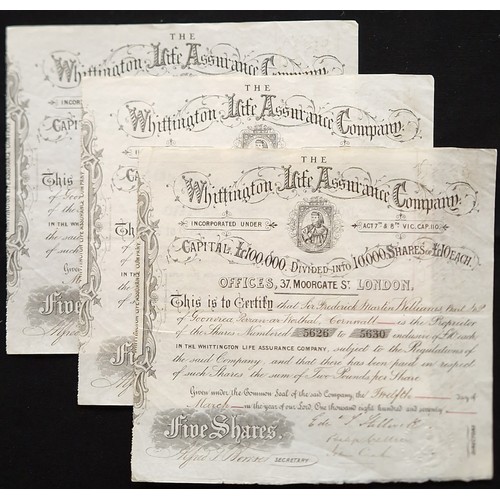 THE
Whittington Life Assurance Company.
INCOR
CAPI
This
of
of the
IN THE WHI
of such
Five
THE
Whittington Life Assurance Company.
INCORPO
CAPIT
This is
of
of the
IN THE WHITT
the said
of such
Give
Five
THE
Whittington Life Assurance Company.
INCORPORATED UNDER ACT 7TH & 8TH VIC. CAP. 110.
CAPITAL £100,000, DIVIDED INTO 10,000 SHARES OF £10 EACH.
OFFICES, 37, MOORGATE ST. LONDON.
This is to Certify that Sir Frederick Martin Williams Bart MP
of Goonvrea Perran-ar-Worthal, Cornwall is the Proprietor
of the Shares Numbered 5626 to 5630 inclusive of £10 each
IN THE WHITTINGTON LIFE ASSURANCE COMPANY, subject to the Regulations of
the said Company and that there has been paid in respect
of such Shares the sum of Two Pounds per Share
Given under the Common Seal of the said Company, the Twelfth day of
March in the year of our Lord, One thousand eight hundred and seventy
Five Shares.
Alfred T. SECRETARY